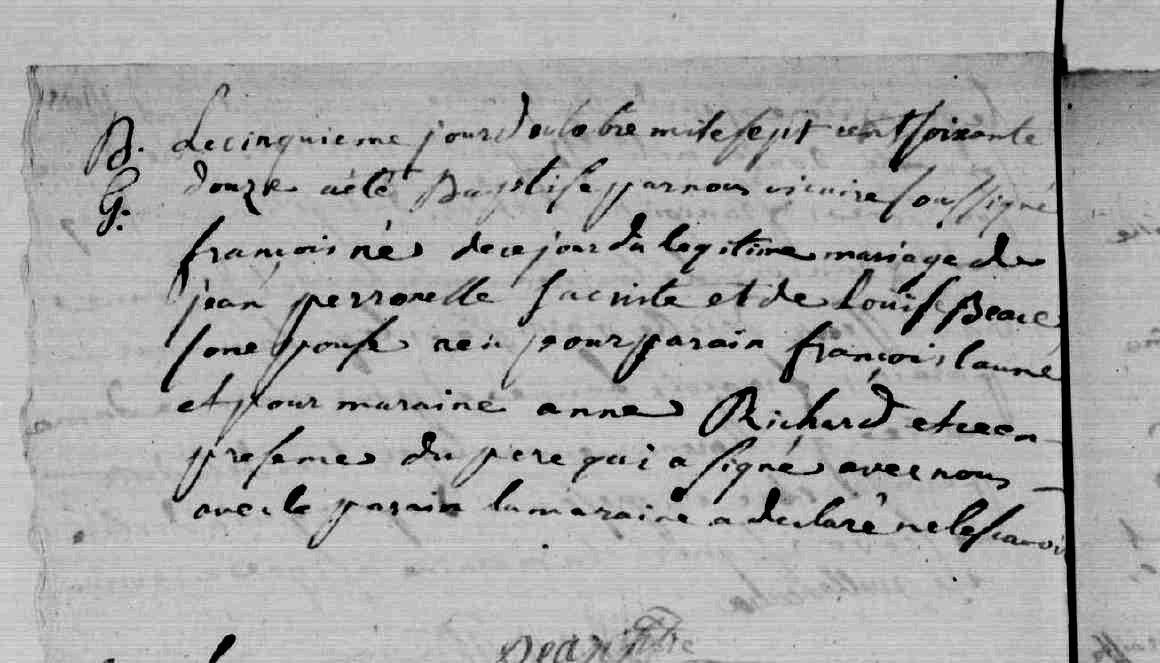 B. Le cinquieme jour d octobre mile sept cent soixante
G. douze a été Baptise par nous vicaire soussigné
françois né de ce jour du legitime mariage de
jean perronelle sacriste et de Louise Beace
son epouse a eu pour parain françois launé
et pour maraine anne Richard et ce en
presence du pere qui a signé avec nous
avec le parain la maraine a declaré ne le scavoir